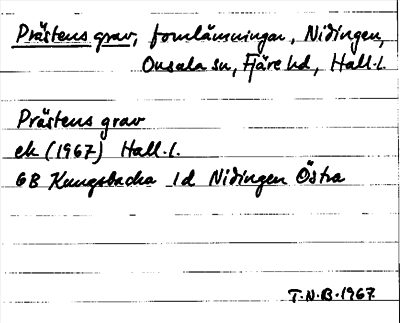 Prästens grav, fornlämningar, Nidingen,
Onsala sn, Fjäre hd, Hall.l.
Prästens grav
ek (1967) Hall.l.
6B Kungsbacka 1d Nidingen Östra
T.N.B. 1967